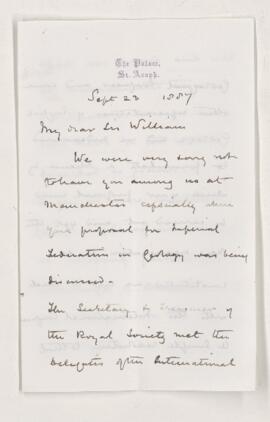 The Palace,
St. Asaph.
Sept 23 1887
My dear Sir William
We were very sorry not
to have you among us at
Manchester especially when
your proposal for Imperial
Federation in Geology was being
discussed.
The Secretary & Treasurer of
the Royal Society met the
Delegates of the International